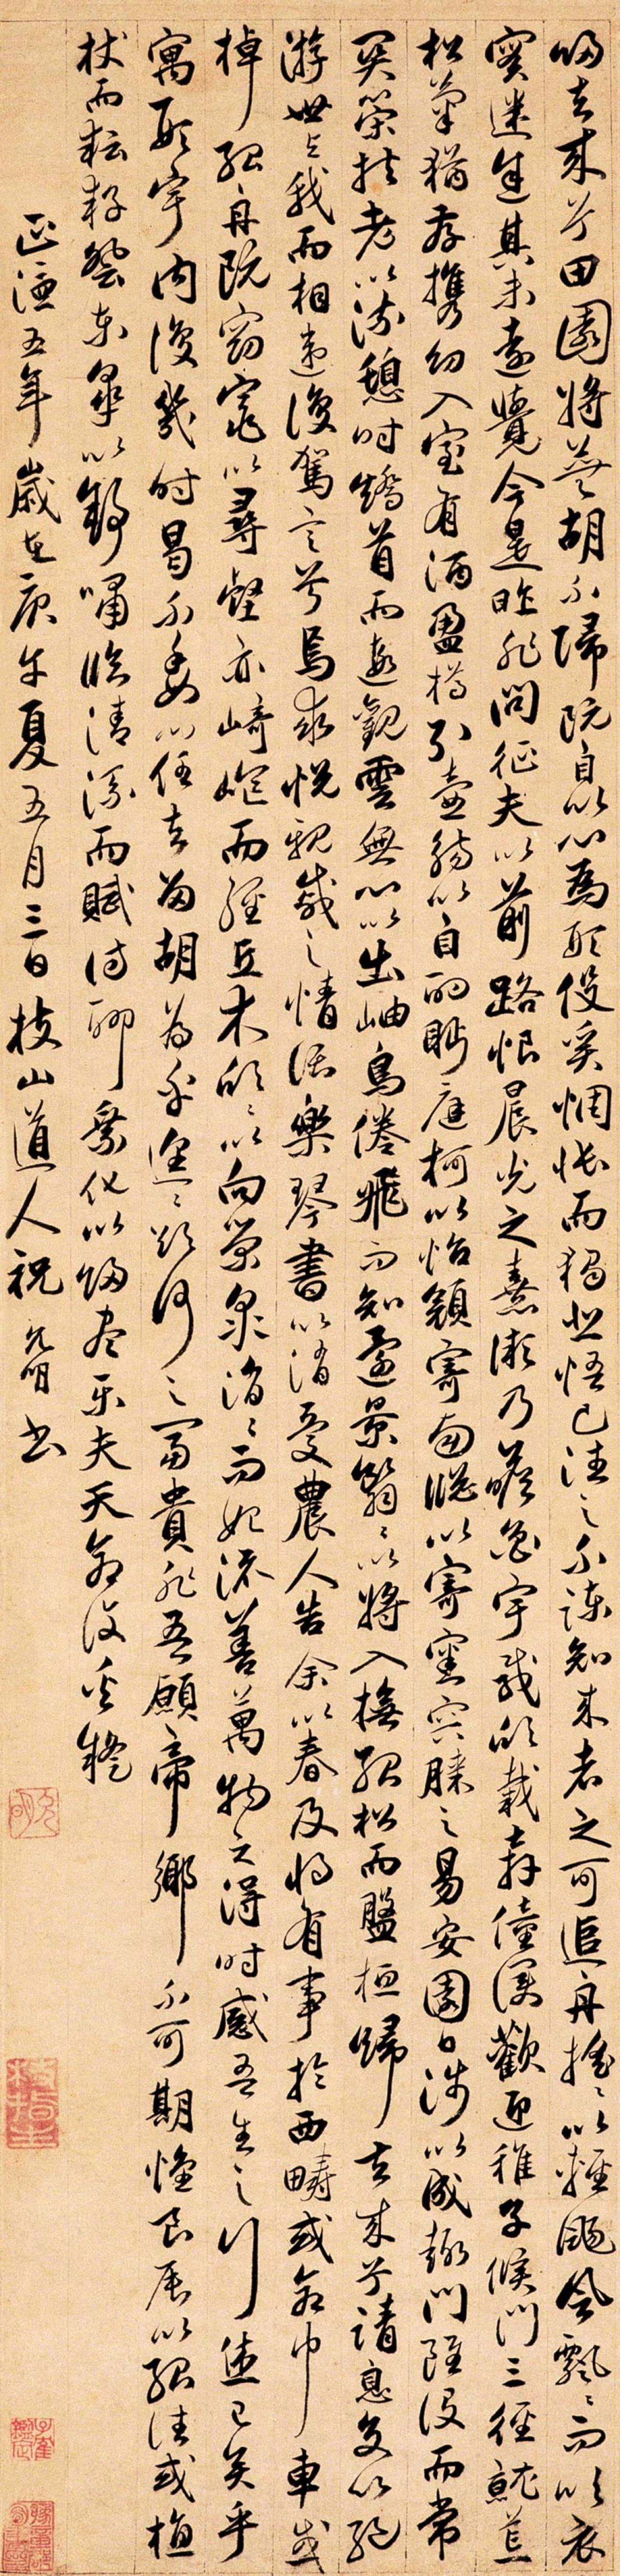 歸去来兮田園將蕪胡不歸既自以心為形役奚惆悵而獨悲悟已往之不諫知来者之可追舟搖〻以輕颺風飄〻而吹衣
實迷途其未遠覺今是昨非問征夫以前路恨晨光之熹微乃瞻衡宇載欣載奔僮僕歡迎稚子候門三徑就荒
松菊猶存攜幼入室有酒盈樽引壺觴以自酌眄庭柯以怡顏寄南牕以寄審容膝之易安園日涉以成趣門雖設而常
關策扶老以流憩時矯首而遐觀雲無心以出岫鳥倦飛而知還景翳〻以將入撫孤松而盤桓歸去来兮請息交以絕
游世與我而相違復駕言兮焉求悅親戚之情話樂琴書以消憂農人告余以春及將有事於西疇或命巾車或
棹孤舟既窈窕以尋壑亦崎嶇而經丘木欣〻以向榮泉涓〻而始流善萬物之得時感吾生之行休已矣乎
寓形宇内復幾時曷不委心任去留胡為乎遑〻欲何之富貴非吾願帝鄉不可期懷良辰以孤往或植
杖而耘耔登東皋以舒嘯臨清流而賦詩聊乘化以歸盡樂夫天命復奚疑
正德五年歲在庚午夏五月三日枝山道人祝允明書
允明